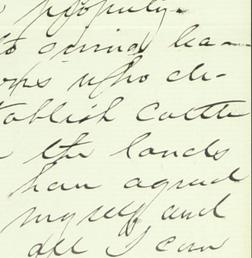 property.
to giving lea-
who de-
tablish cattle
the lands
have agreed
myself and
all I can